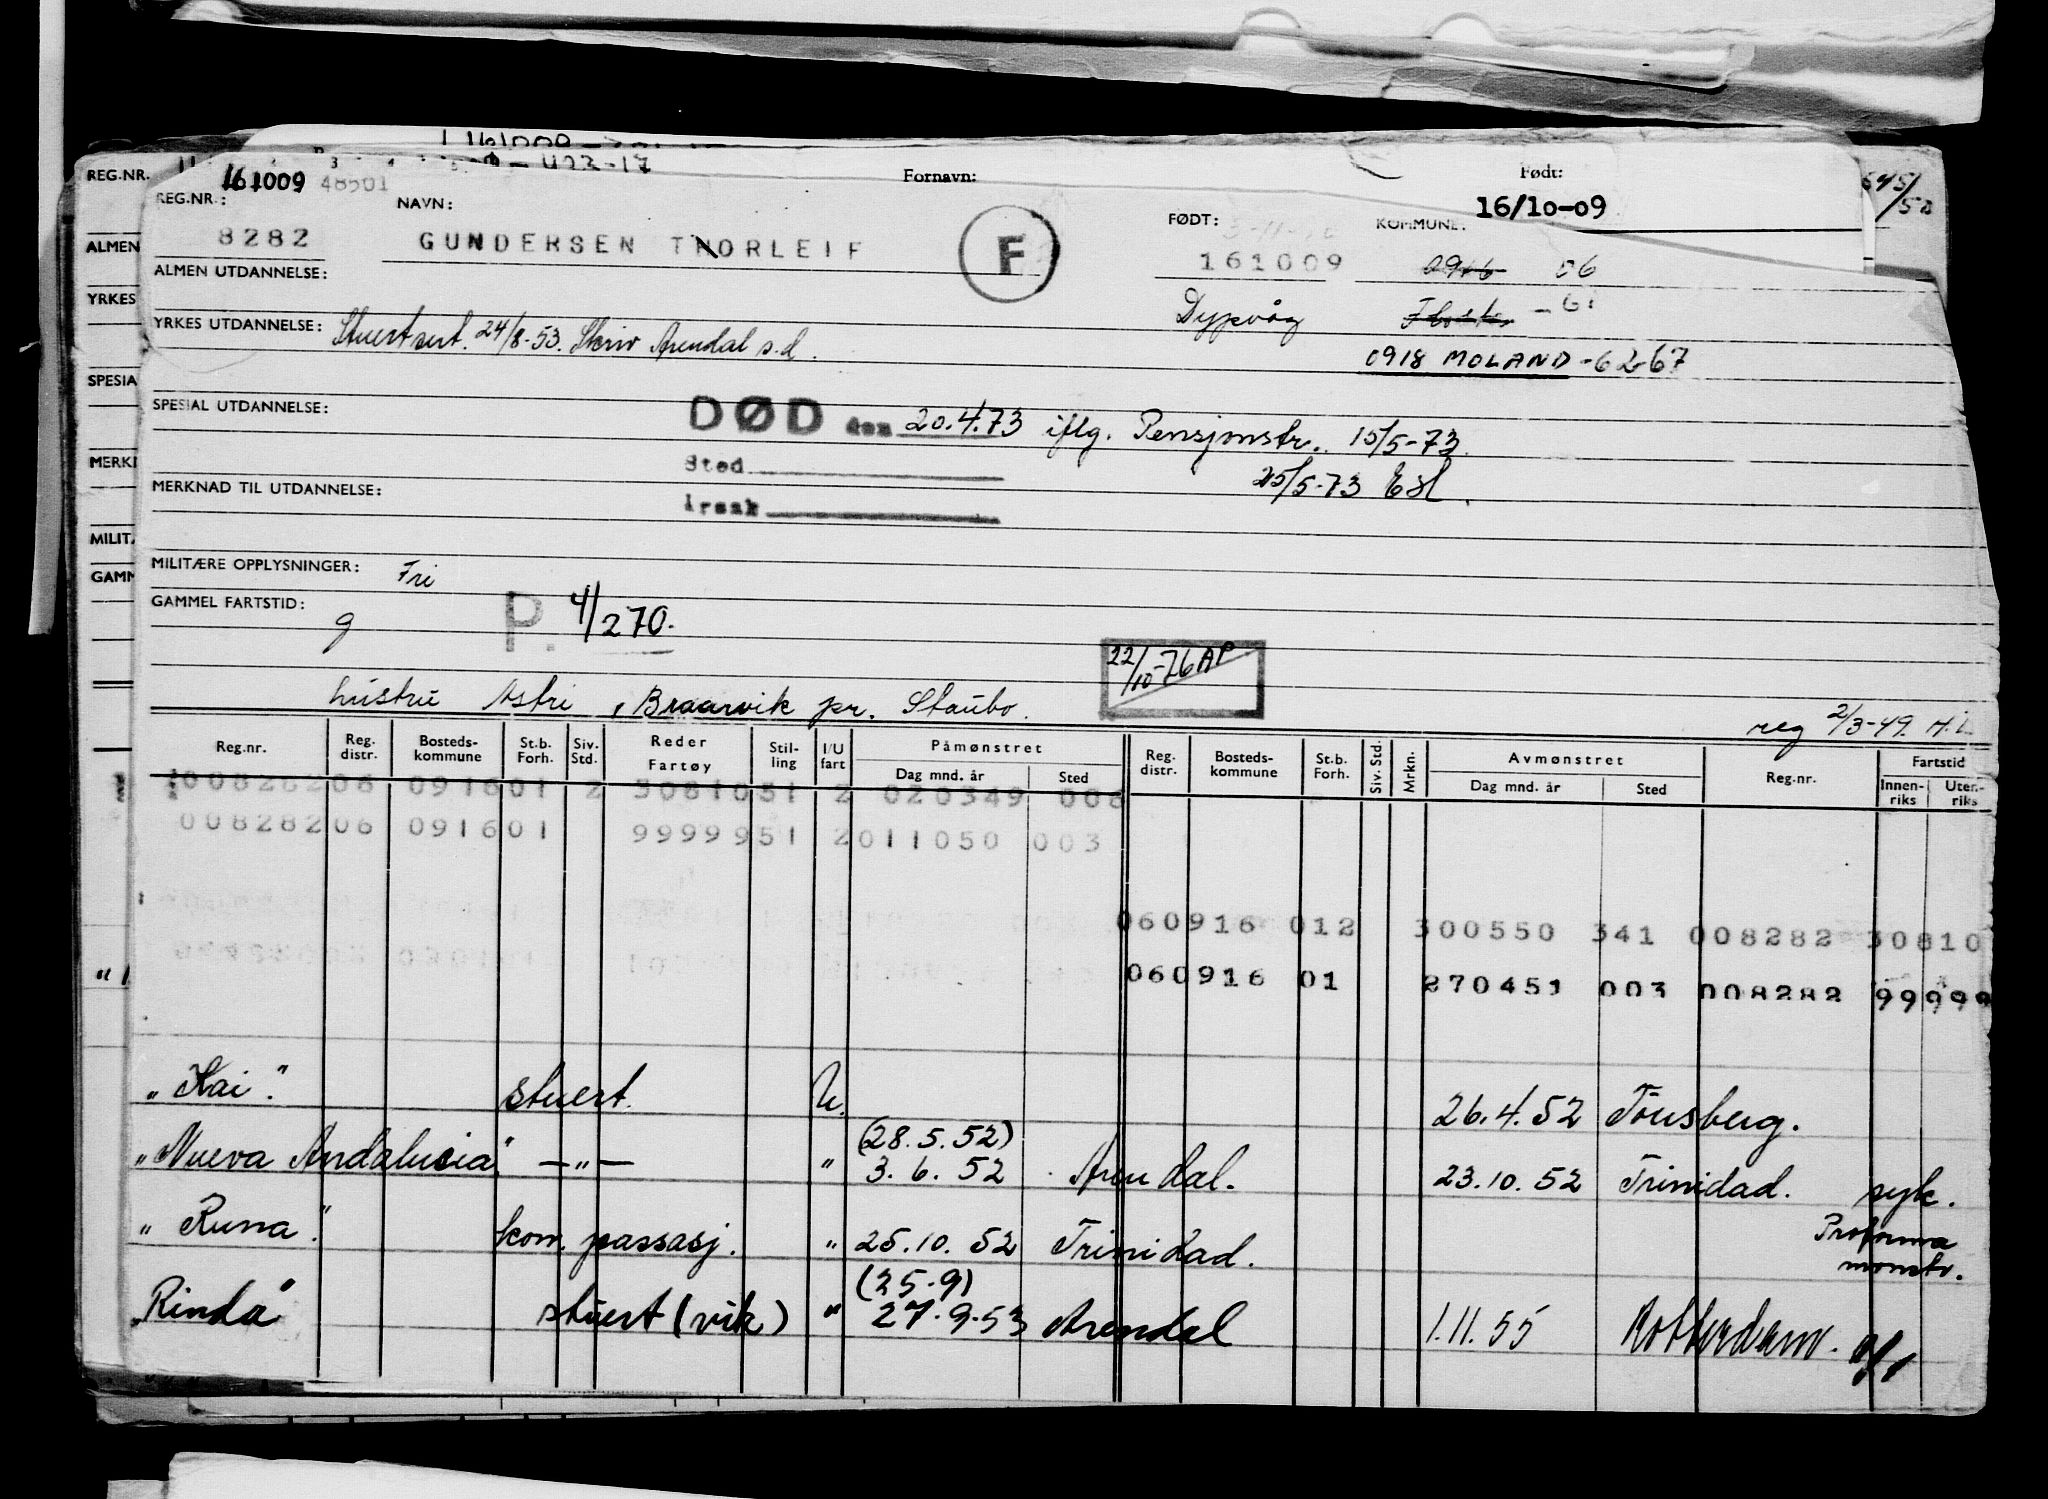 161009
REG.NR.
161009 48501
Fornavn:
Født:
16/10-09
645/50
REG.NR.:
NAVN:
FØDT:
KOMMUNE:
8282
GUNDERSEN THORLEIF
F
161009
0916 06
ALMEN
ALMEN UTDANNELSE:
Dypvåg
Flosta - 61
YRKES
YRKES UTDANNELSE: Stuertsert. 24/8-53. Skriv Arendal s.d.
0918 MOLAND -6267
SPESIA
SPESIAL UTDANNELSE:
DØD den 20.4.73 iflg. Pensjonstr. 15/5-73.
Sted
25/5-73 Esl.
MERKN
MERKNAD TIL UTDANNELSE:
Årsak
MILIT
MILITÆRE OPPLYSNINGER: Fri
GAMM
GAMMEL FARTSTID: 9
P. 4/270.
22/10-76 AP
hustru Astri, Braarvik pr. Staubo.
reg 2/3-49. H.L
Reg.nr. Reg. distr. Bosteds-kommune St.b. Forh. Siv. Std. Reder Fartøy Stil-ling I/U fart Påmønstret Dag mnd. år Sted Reg. distr. Bosteds-kommune St.b. Forh. Siv. Std. Mrkn. Avmønstret Dag mnd. år Sted Reg.nr. Fartstid Innen-riks Uten-riks
00828206 091601 2 3081051 2 020349 008
00828206 091601 9999951 2011050 003
060916 012 300550 341 008282 30810
060916 01 270451 003 008282 99999
"Kai". stuert. U. 26.4.52 Tönsberg.
"Nueva Andalucia" —"— " (28.5.52) 3.6.52 Arendal. 23.10.52 Trinidad. syk.
"Runa". kom. passasj. " 25.10.52 Trinidad. Proforma mønstr.
"Rinda" stuert (vik) " (25.9) 27.9.53 Arendal 1.11.55 Rotterdam.